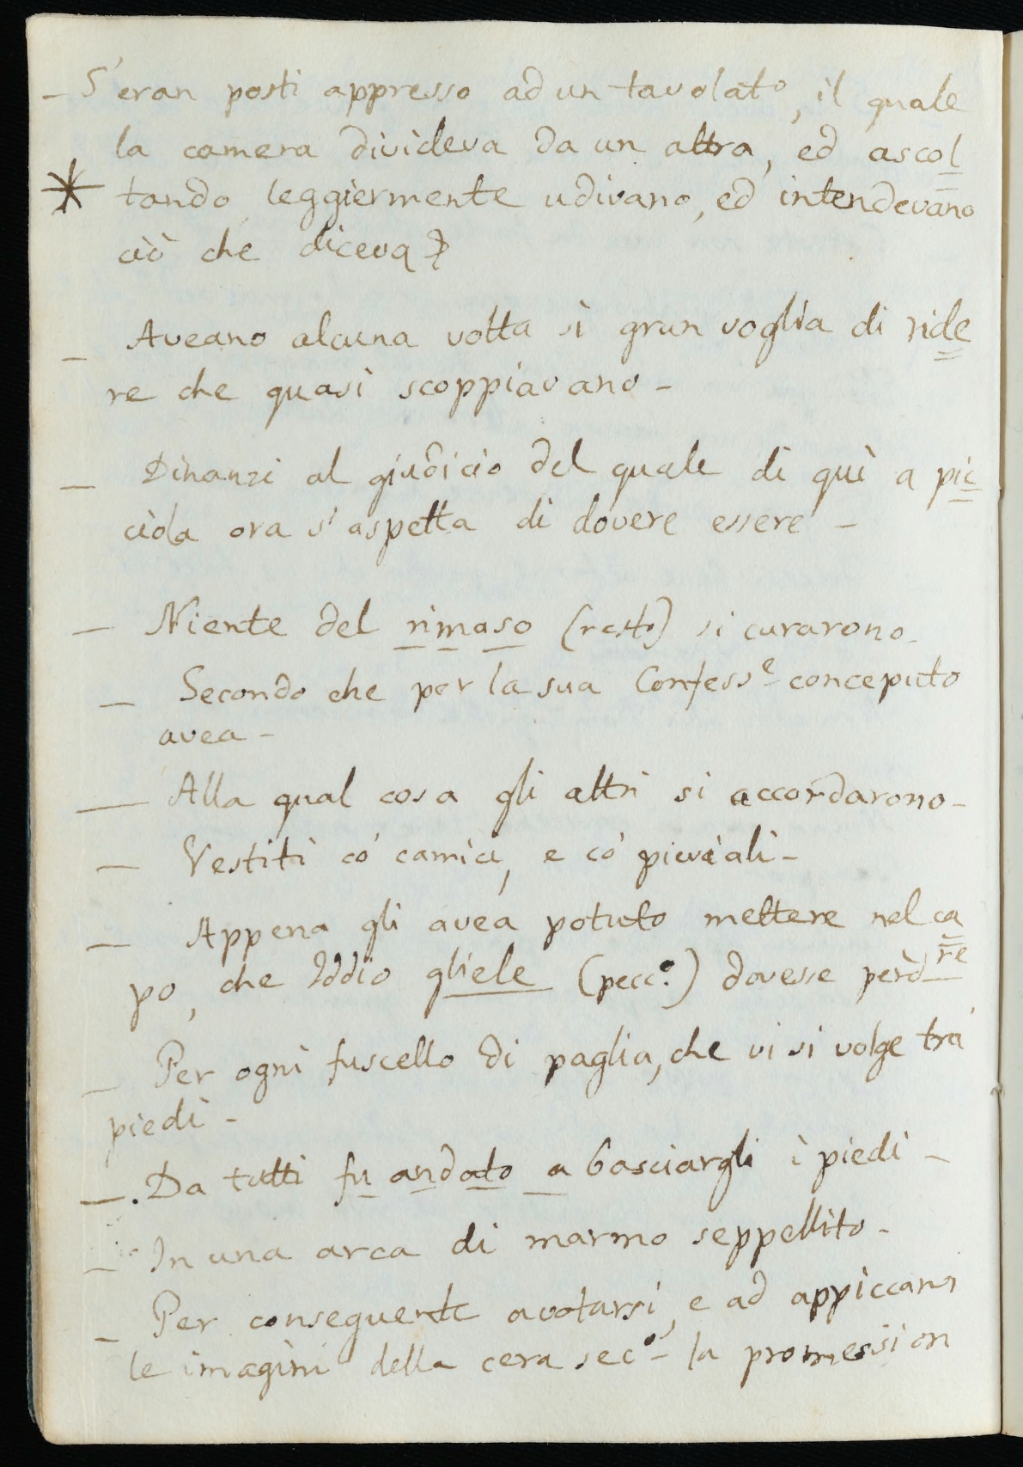 – S'eran posti appresso ad un tavolato, il quale
la camera divideva da un altra, ed ascol
* tando leggiermente udivano, ed intendevano
ciò che diceva
– Aveano alcuna volta sì gran voglia di ride
re che quasi scoppiavano –
– Dinanzi al giudicio del quale di quì a pic
ciola ora s'aspetta di dovere essere –
– Niente del rimaso (resto) si curarono –
– Secondo che per la sua Confess.e conceputo
avea –
– Alla qual cosa gli altri si accordarono –
– Vestiti co' camici, e co' pieviali –
– Appena gli avea potuto mettere nel ca
po, che Iddio gliele (pecc.o) dovesse perdo
re
– Per ogni fuscello di paglia, che vi si volge tra'
piedi –
– . Da tutti fu andato a basciargli i piedi –
– In una arca di marmo seppellito –
– Per conseguente avotarsi, e ad appiccarvi
le imagini della cera sec.o la promession